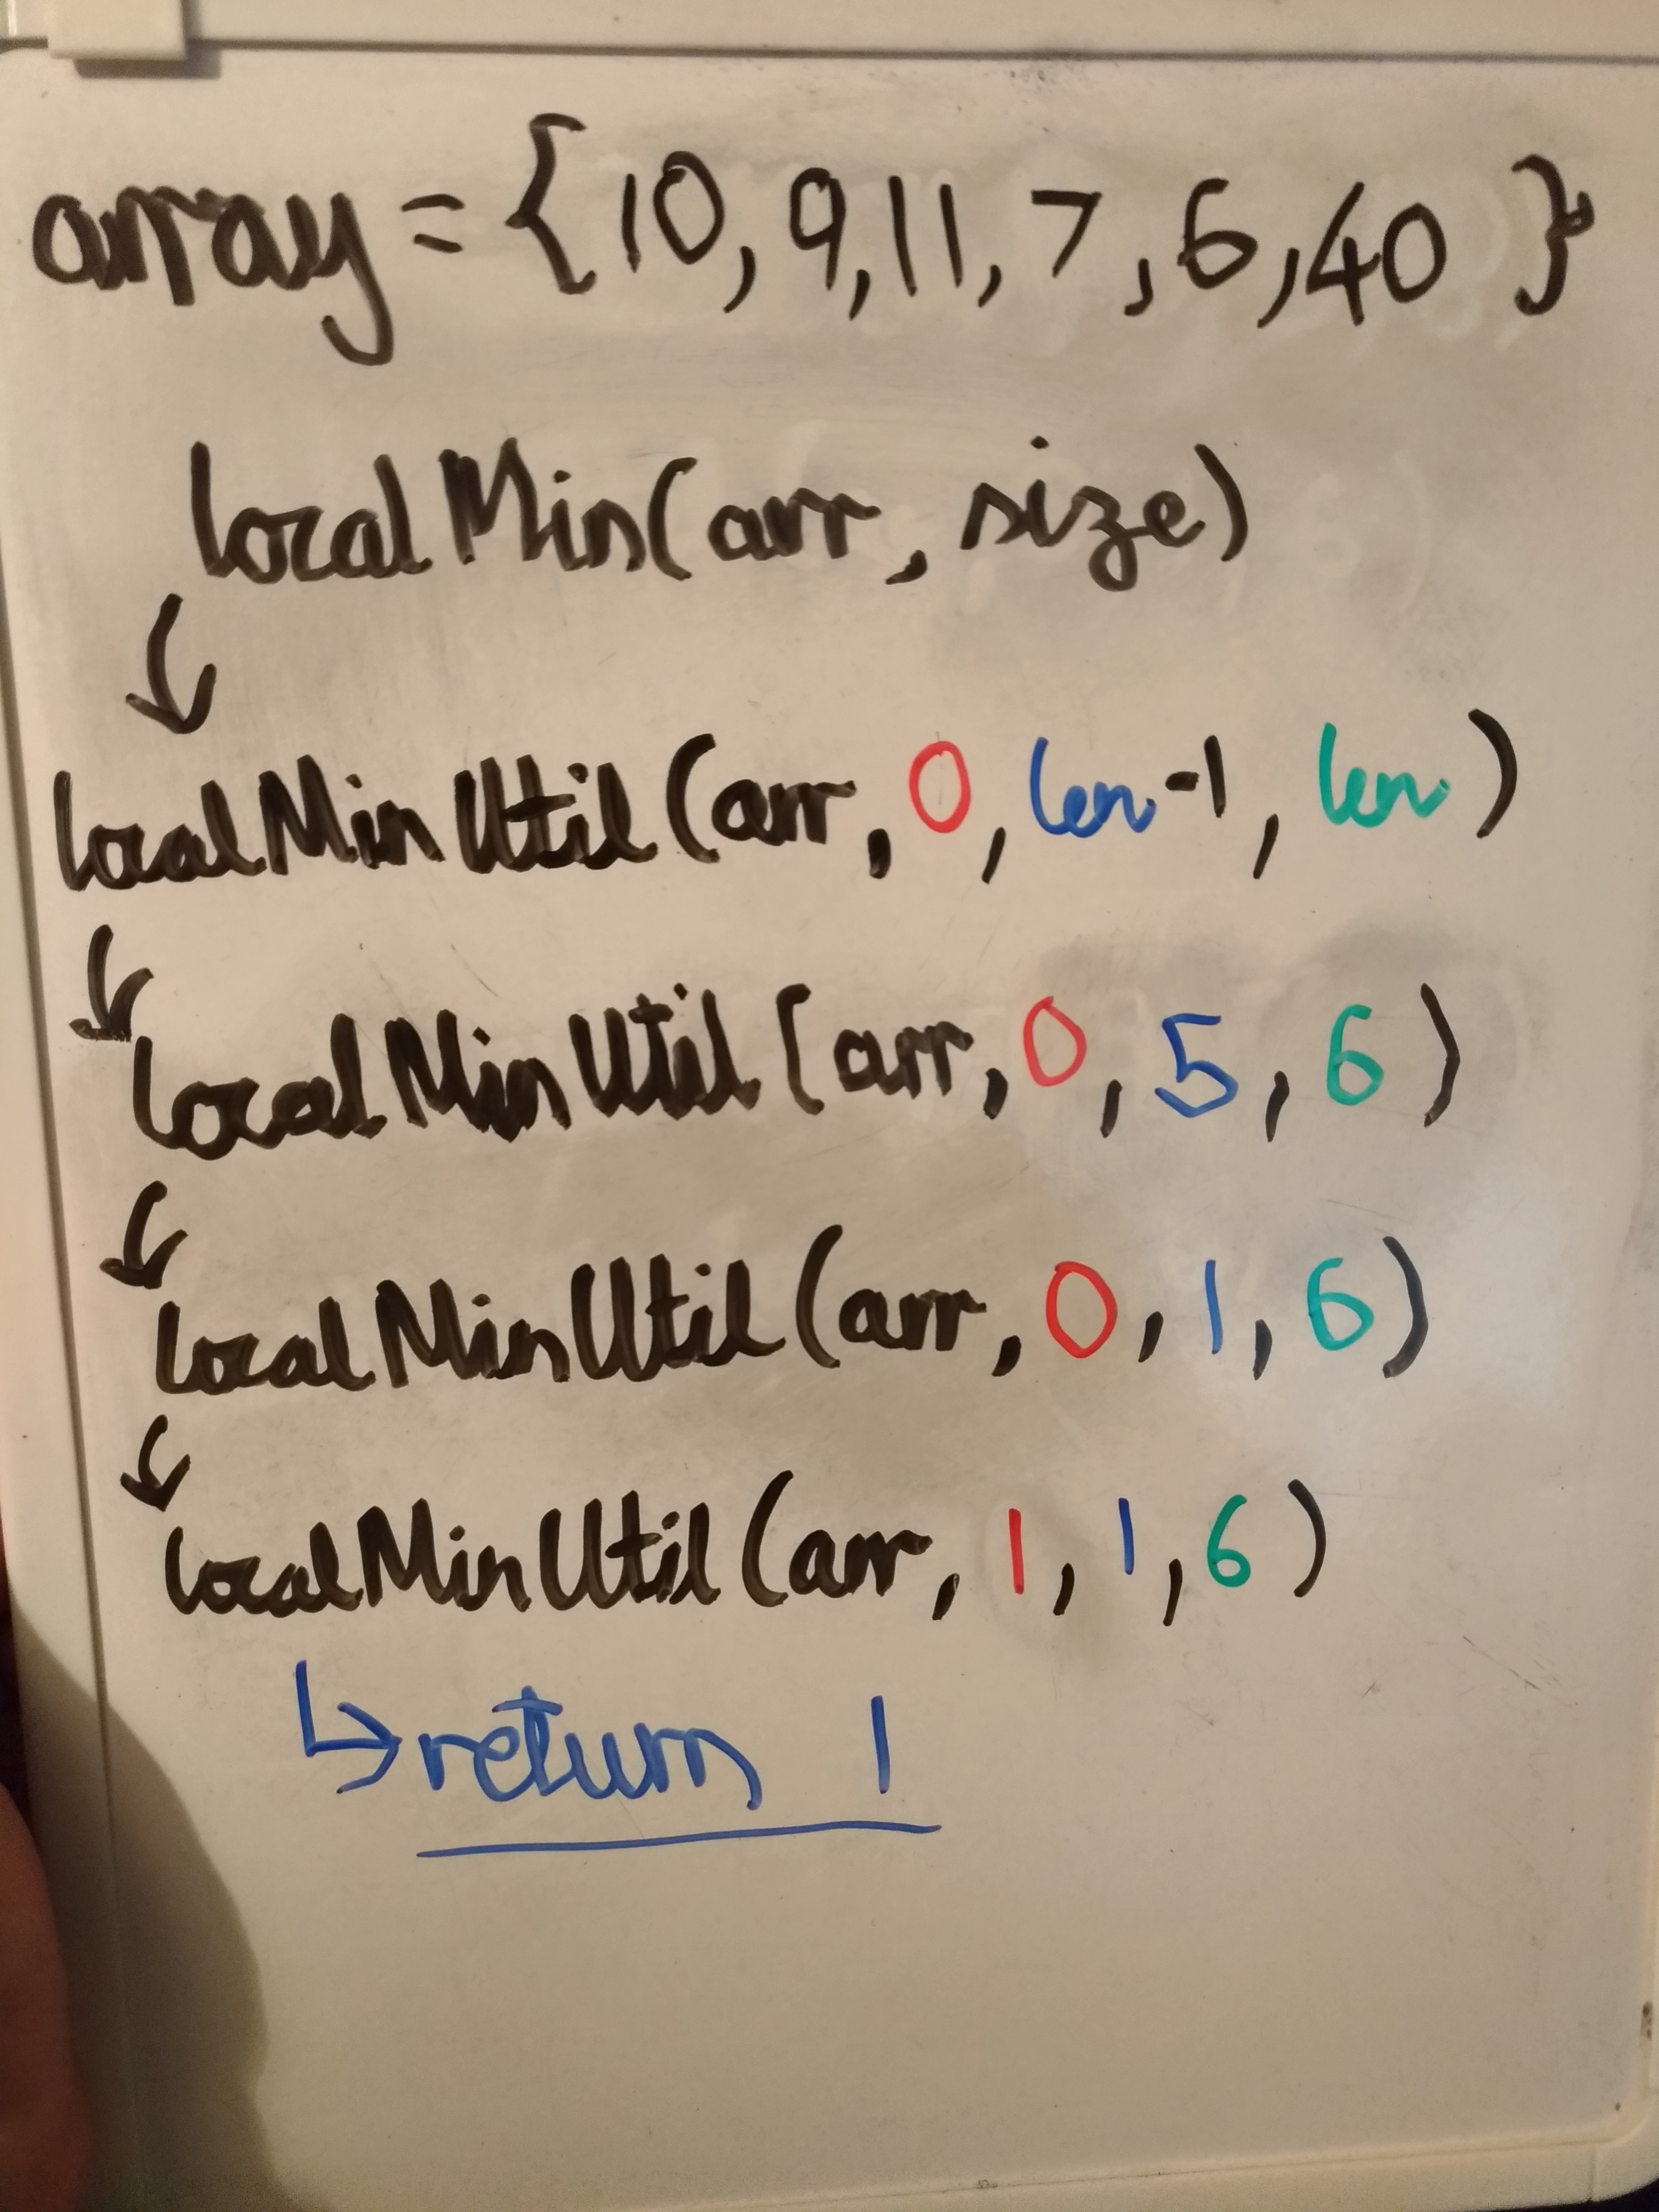 array = {10, 9, 11, 7, 6, 40 }
localMin(arr, size)
localMinUtil(arr, 0, len-1, len)
localMinUtil(arr, 0, 5, 6)
localMinUtil(arr, 0, 1, 6)
localMinUtil(arr, 1, 1, 6)
↳ return 1